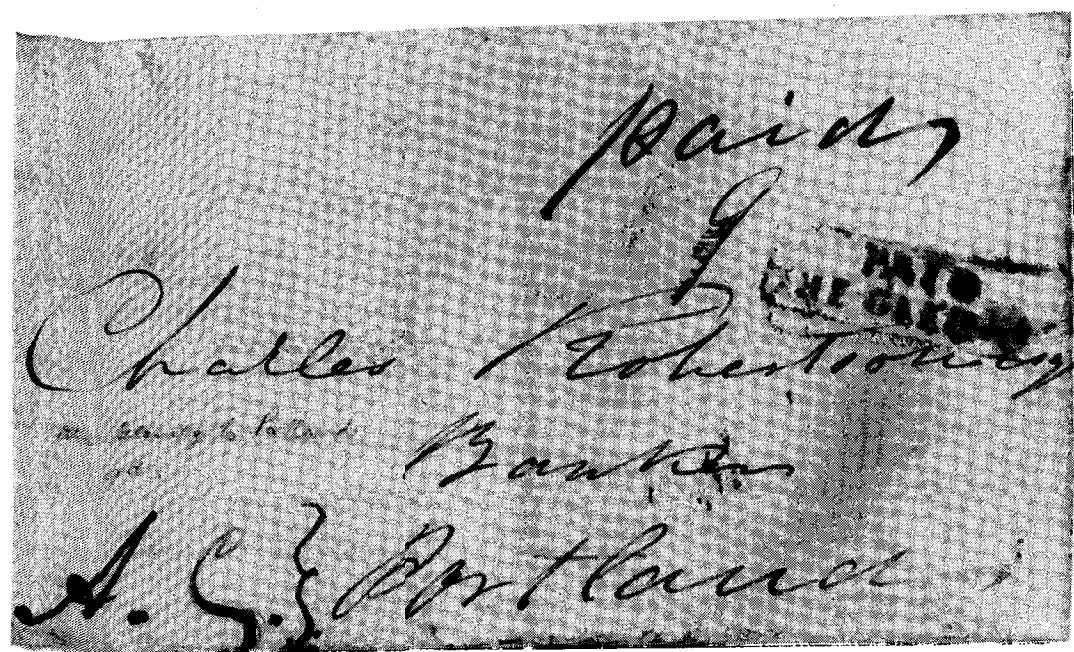 paid
9
PAID
THE GLE
Charles Robertson Esq
Banker
A. G.} Portland